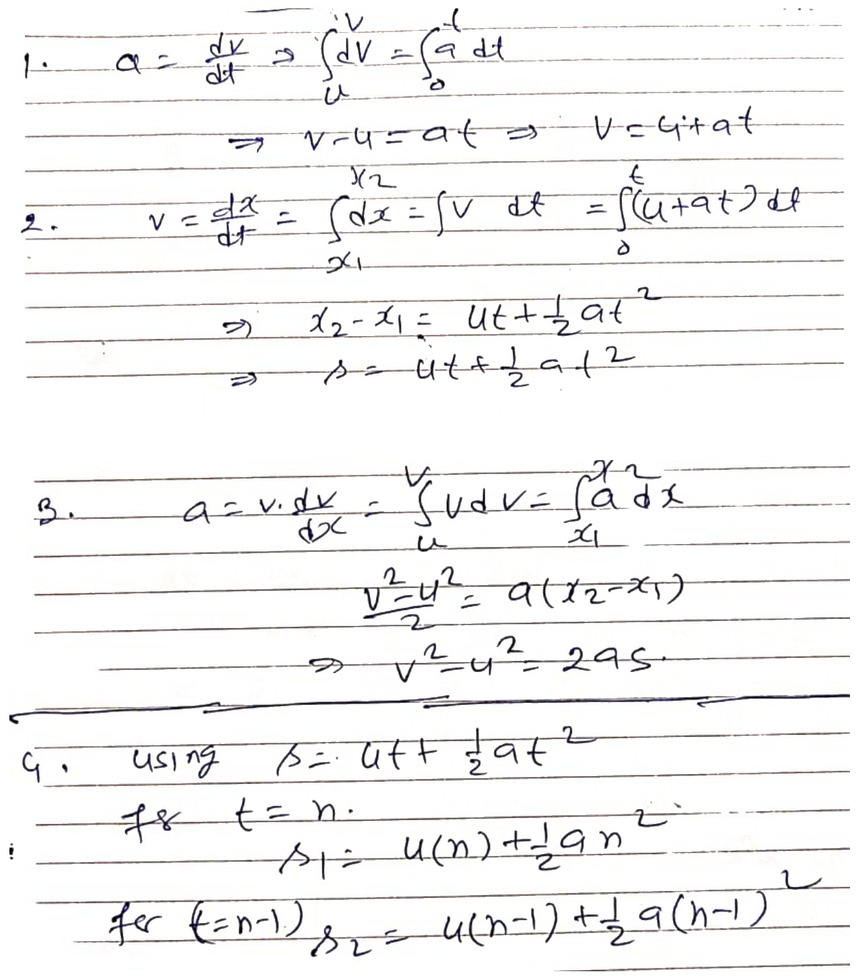 1. a = dv/dt ⇒ ∫ᵤᵛ dv = ∫₀ᵗ a dt
⇒ v-u = at ⇒ v = u+at
2. v = dx/dt = ∫ₓ₁ˣ² dx = ∫v dt = ∫₀ᵗ (u+at) dt
⇒ x₂-x₁ = ut+½at²
⇒ s = ut+½at²
3. a = v.dv/dx = ∫ᵤᵛ vdv = ∫ₓ₁ˣ² a dx
(v²-u²)/2 = a(x₂-x₁)
⇒ v²-u² = 2as.
4. using s = ut+½at²
for t = n.
s₁ = u(n)+½an²
for (t=n-1) s₂ = u(n-1)+½a(n-1)²